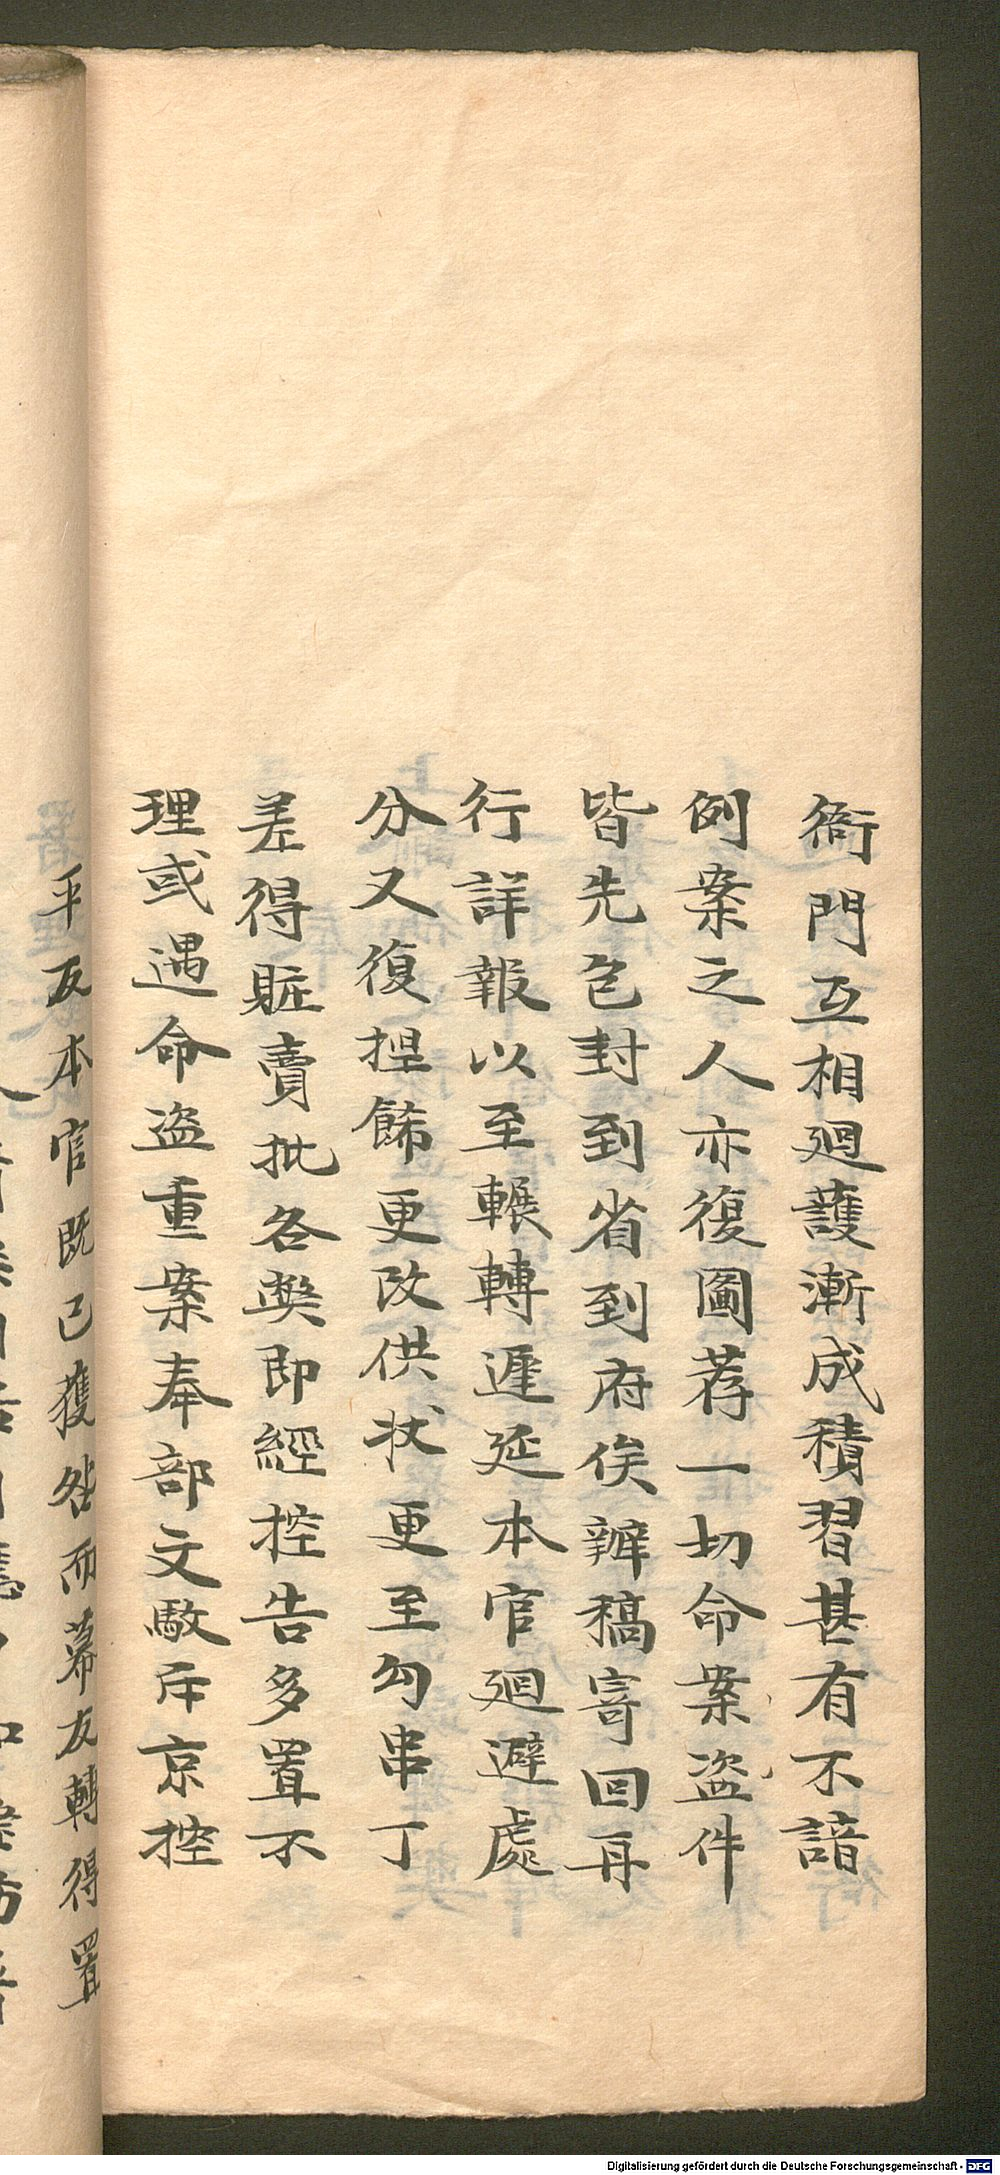 衙門互相廻護漸成積習甚有不諳
例案之人亦復圖荐一切命案盗件
皆先包封到省到府俟辦稿寄回再
行詳報以至輾轉遲延本官廻避處
分又復捏餙更改供狀更至勾串丁
差得賍賣批各獘即經控告多置不
理或遇命盗重案奉部文駁斥京控
平反本官既已獲咎而幕友轉得置
Digitalisierung gefördert durch die Deutsche Forschungsgemeinschaft - DFG